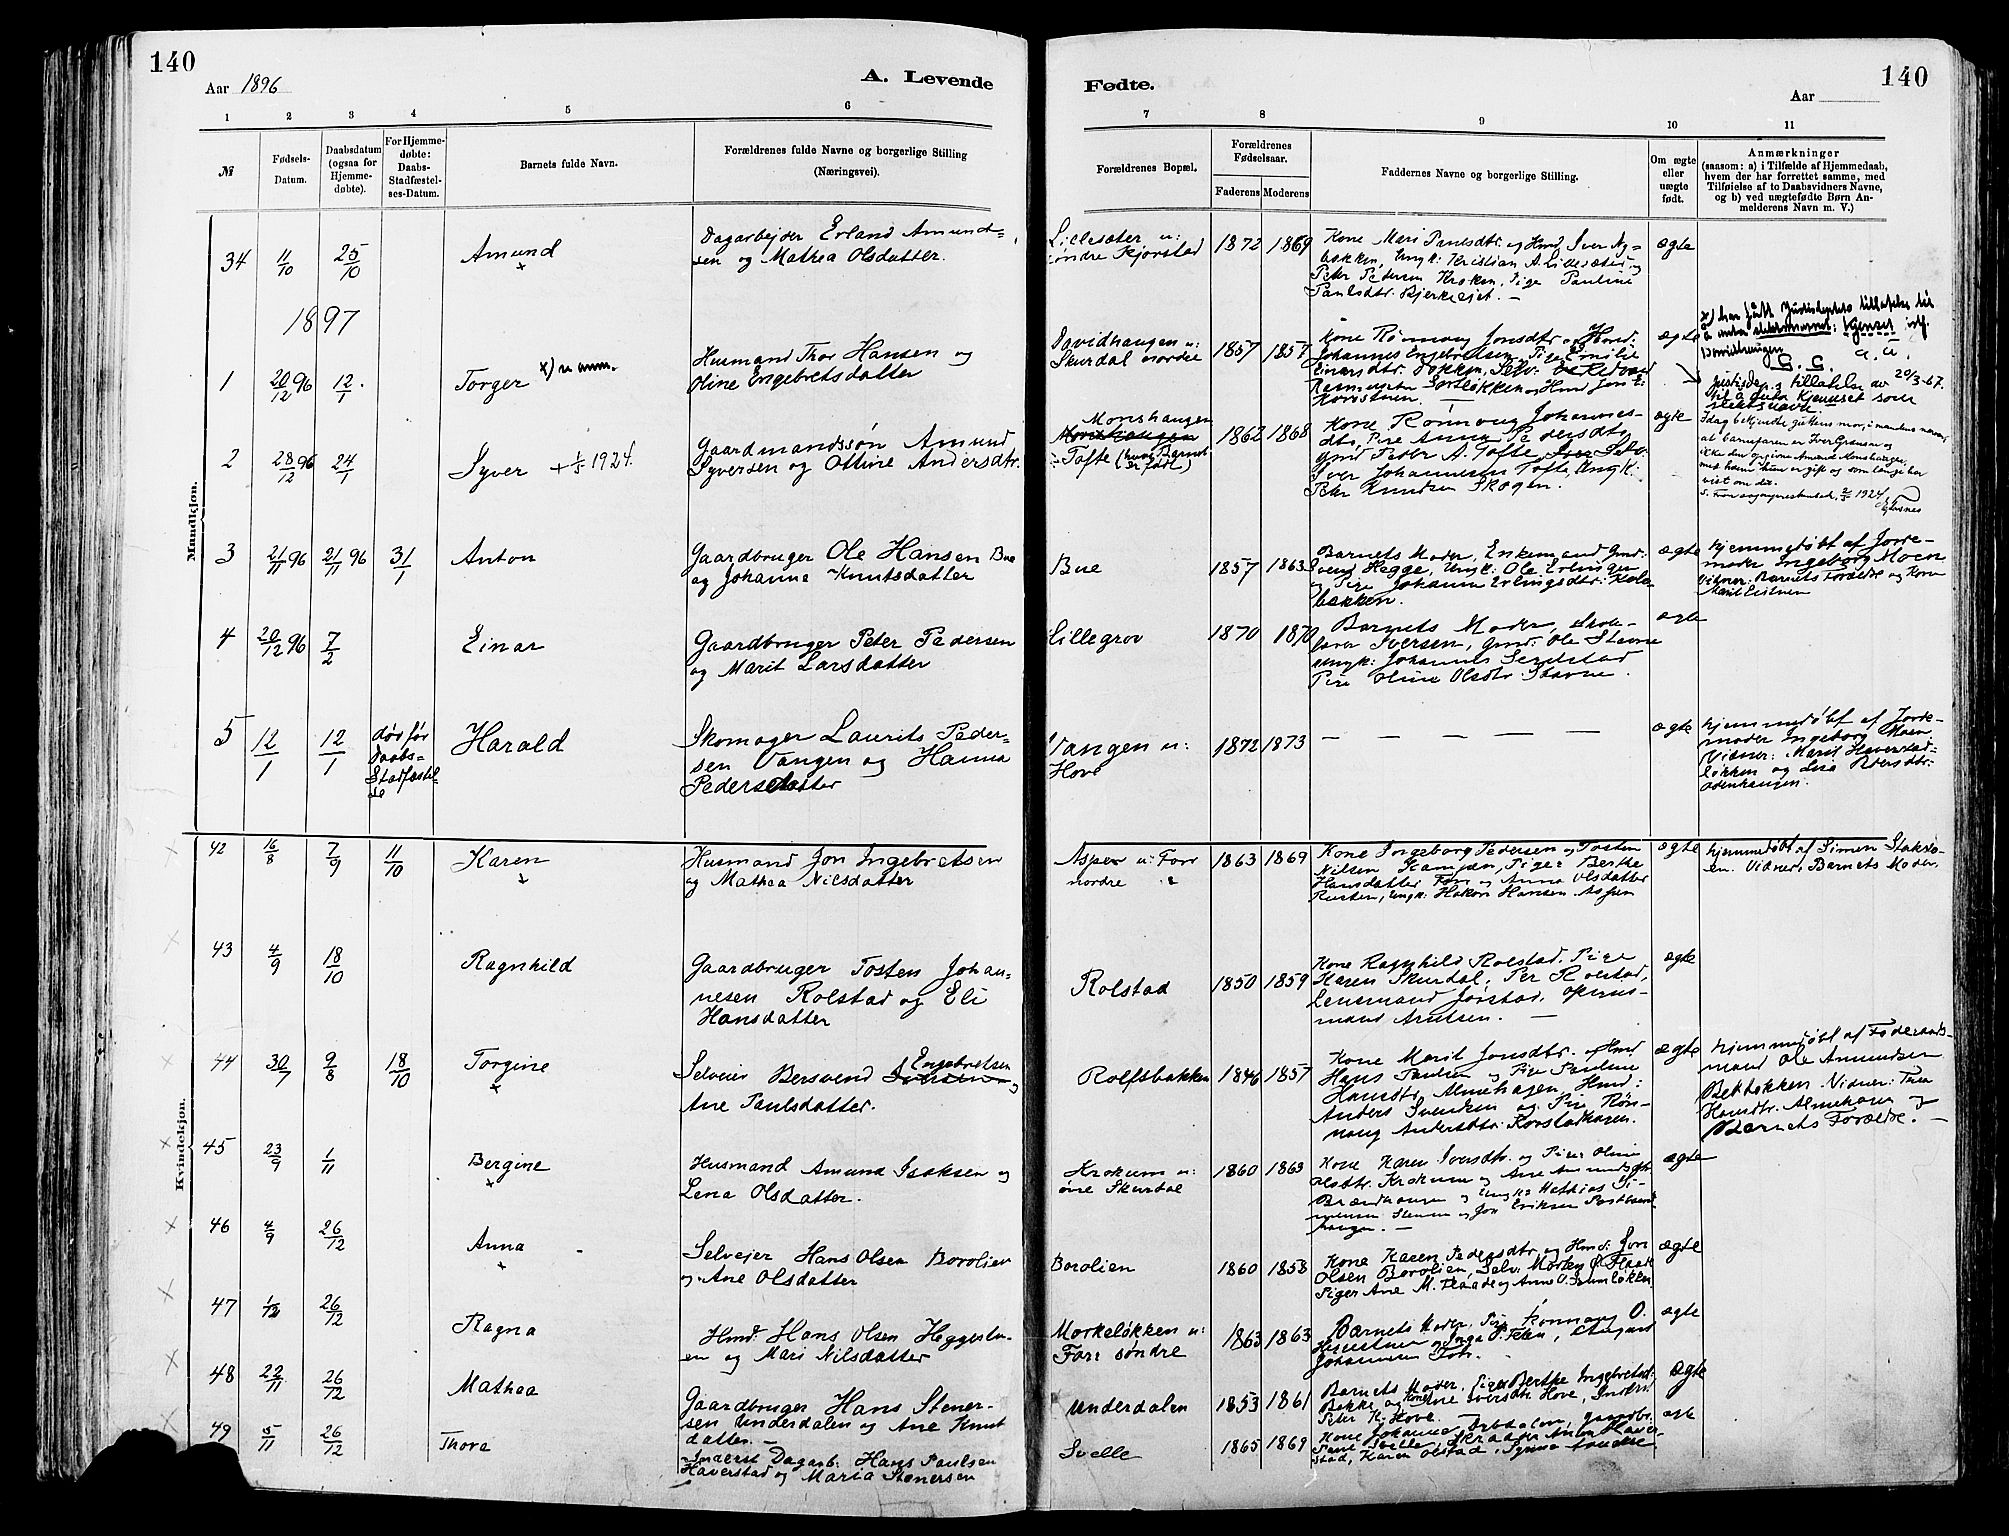 140
Aar 1896
A. Levende
Fødte.
140
Aar
1 2 3 4 5 6 7 8 9 10 11
№
Fødsels-
Datum.
Daabsdatum
(ogsaa for
Hjemme-
døbte).
For Hjemme-
døbte:
Daabs-
Stadfæstel-
ses-Datum.
Barnets fulde Navn.
Forældrenes fulde Navne og borgerlige Stilling
(Næringsvei).
Forældrenes Bopæl.
Forældrenes
Fødselsaar.
Faderens Moderens
Faddernes Navne og borgerlige Stilling.
Om ægte
eller
uægte
født.
Anmærkninger
(saasom: a) i Tilfælde af Hjemmedaab,
hvem der har forrettet samme, med
Tilføielse af to Daabsvidners Navne,
og b) ved uægtefødte Børn An-
melderens Navn m. V.)
Mandkjøn.
34 11/10 25/10 Amund
Dagarbejder Erland Amund-
sen og Mathea Olsdatter.
Lillesæter u:
søndre Kjørstad
1872 1869
Kone Mari Paulsdtr. og Hmd. Iver Ny-
bakken, Ungk: Kristian A. Lillesæter og
Peter Pedersen Kroken, Pige Pauline
Paulsdtr. Bjerkelyet. —
ægte
1897
1 20/12 96 12/1. Torger x) se anm.
Husmand Thor Hansen og
Oline Engebretsdatter
Davidhaugen u:
Skurdal nordre
1857 1857
Kone Rønnaug Jonsdtr. og Hmd:
Johannes Engebretsen, Pige Emilie
Einarsdtr. Bakken,
ægte
x) har fått Justisdeptets tillatelse til
å anta slektsnavnet: Kjenset istf.
Davidhaugen
Justisdep.s tillatelse av 20/3-67.
til å anta Kjenset som
slektsnavn.
2 28/12 96 24/1 Syver + 1/5 1924.
Gaardmandssøn Amund
Syversen og Ottine Andersdtr.
Monshaugen
Monshaugen
Tofte (hvor Barnet
er født)
1862 1868
Kone Rønnoug Johannes-
dtr, Pige Anna Pedersdtr,
Gmd Pedr A. Tofte,
Iver Johannesen Tofte, Ungk:
Peter Knudsen Skogen.
ægte
3 21/11 96 21/11 96 31/1 Anton
Gaardbruger Ole Hansen Bue
og Johanne Knutsdatter
Bue
1857 1863
Barnets Moder, Enkemand Gmd.
Svend Hegge, Ungk: Ole Erlingsen
og Pige Johanne Erlingsdtr. Kole-
bakken.
ægte
Hjemmedøbt af Jorde-
moder Ingeborg Moen
Vidner: Barnets Forældre og Kone
Marit Listuen
4 20/12 96 7/2 Einar
Gaardbruger Peter Pedersen
og Marit Larsdatter
Lillegrov
1870 1870
Barnets Moder, Skole-
lærer Iversen, Gmd: Ole Stavne
Ungk: Johannes Segelstad
Pige Oline Olsdtr. Stavne.
ægte
5 12/1 12/1 død før
Daabs-
Stadfæstel-
se
Harald
Skomager Laurits Peder-
sen Vangen og Hanna
Pedersdatter
Vangen u:
Hove
1872 1873
— — — — — —
ægte
Hjemmedøbt af Jorde-
moder Ingeborg Moen
Vidner: Marit Haverstad-
løkken og Lisa Pedersdtr.
Odenhaugen.
Kvindekjøn.
42 16/8 7/9 11/10 Karen
Husmand Jon Ingebretsen
og Mathea Nilsdatter
Aspen u: Forr
nordre
1863 1869
Kone Ingeborg Pedersen og Tosten
Nilsen Kampen, Piger Berthe
Hansdatter Forr og Anna Olsdatter
Rusten, Ungk: Hakon Hansen Aspen
ægte
Hjemmedøbt af Simen Stokstu-
en. Vidner, Barnets Moder.
43 4/9 18/10 Ragnhild
Gaardbruger Tosten Johan-
nesen Rolstad og Eli
Hansdatter
Rolstad
1850 1859
Kone Ragnhild Rolstad. Pige
Karen Skurdal, Per Rolstad,
Lensmand Jørstad,
ægte
44 30/7 9/8 18/10 Torgine
Selveier Bersvend Iversen Engebretsen og
Ane Paulsdatter.
Rolfsbakken
1846 1857
Kone Marit Jonsdtr. og Hmd
Hans Paulsen og Pige Pauline
Hansdtr Almehagen, Hmd:
Anders Svendsen og Pige Røn-
naug Andersdtr. Korstadhagen.
ægte
Hjemmedøbt af Føderaads-
mand Ole Amundsen
Bekkelokken. Vidner: Thea
Hansdtr. Almehagen og
Barnets Forældre. —
45 23/9 1/11 Bergine
Husmand Amund Isaksen og
Lena Olsdatter.
Krokum u:
øvre Skurdal
1860 1863
Kone Karen Iversdtr. og Piger Oline
Olsdtr. Krokum og Ane Amundsdtr
Brændhaugen og Ungk: Mathias Si-
monsen Stenen og Jon Eriksen
ægte
46 4/9 26/12 Anna
Selvejer Hans Olsen Borolien
og Ane Olsdatter
Borolien
1860 1858
Kone Karen Pedersdtr. og Hmd: Jon
Olsen Borolien, Selv: Morten O. Flaate
Piger Ane M. Flaate og Anne O.
ægte
47 1/12 26/12 Ragna
Hmd: Hans Olsen Heggestu-
en og Mari Nilsdatter
Morkeløkken u:
Forr søndre
1863 1863
Barnets Moder, Pige Rønnaug O.
Heggestuen og Inga
Johannesen Forr.
ægte
48 22/11 26/12 Mathea
Gaardbruger Hans Stener-
sen Underdalen og Ane Knut
datter. —
Underdalen
1853 1861
Barnets Moder, Piger Berthe Ingebretsd.
Bakke og Kone Ane Iversdtr Hove,
Peter K. Hove.
ægte
49 5/11 26/12 Thora
Inderst Dagarb: Hans Paulsen
Haverstad og Maria Stenersen
Svelle
1865 1869
Kone Johanne
Paul Svelle, Skrædder Anton Haver-
stad, Karen Olstad,
ægte